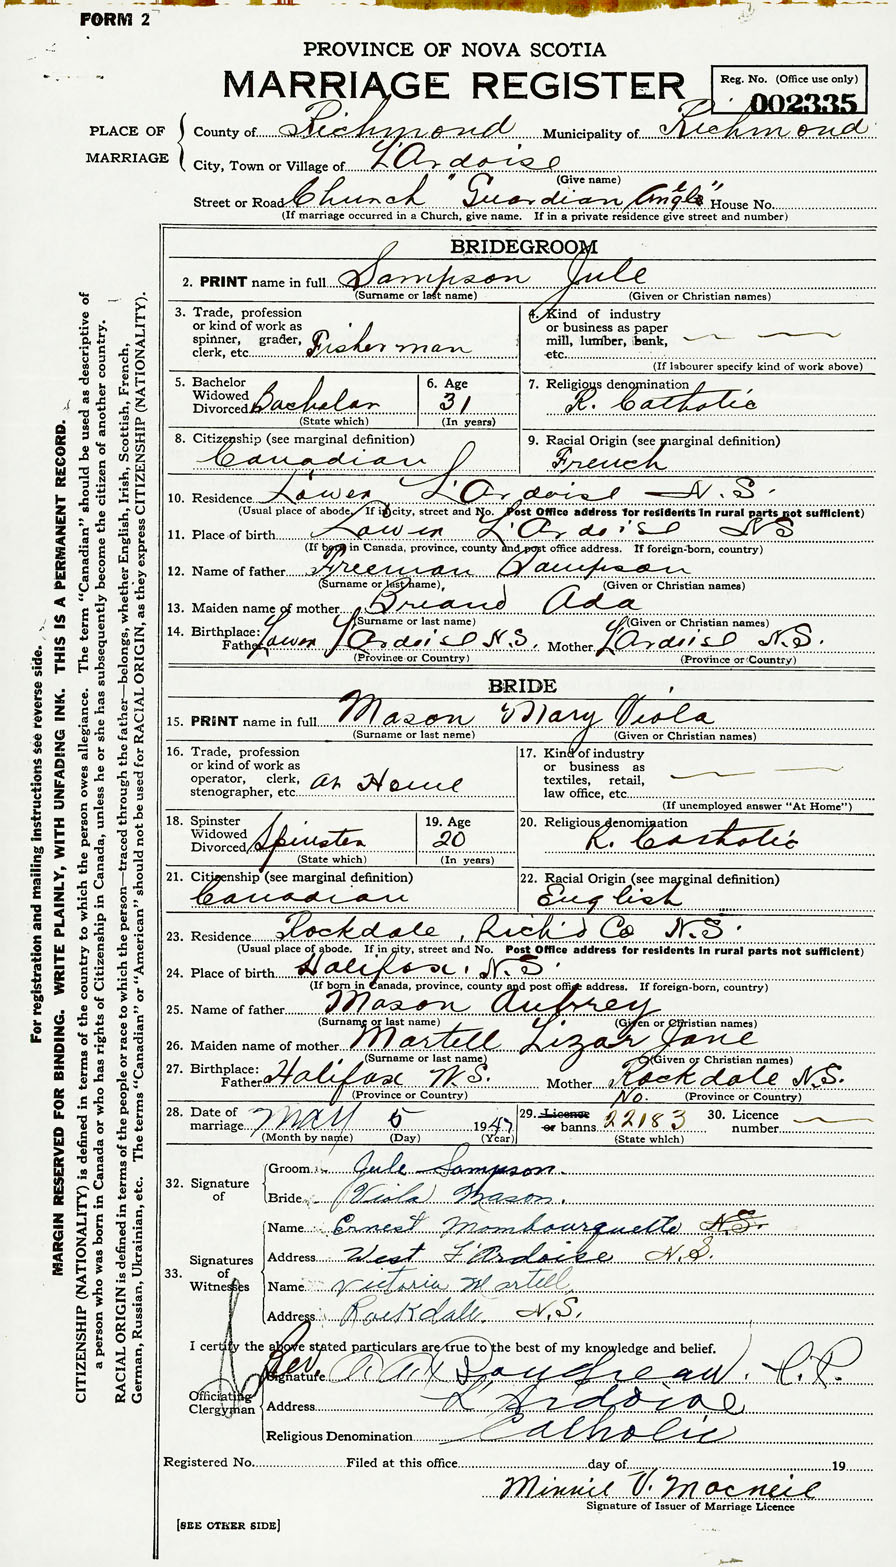 FORM 2
PROVINCE OF NOVA SCOTIA
MARRIAGE REGISTER
Reg. No. (Office use only)
002335
PLACE OF MARRIAGE
County of Richmond Municipality of Richmond
City, Town or Village of L'Ardoise
(Give name)
Street or Road Church "Guardian Angle" House No.
(If marriage occurred in a Church, give name. If in a private residence give street and number)
BRIDEGROOM
2. PRINT name in full Sampson Jule
(Surname or last name) (Given or Christian names)
3. Trade, profession or kind of work as spinner, grader, clerk, etc. Fisherman
4. Kind of industry or business as paper mill, lumber, bank, etc.
(If labourer specify kind of work above)
5. Bachelor Widowed Divorced Bachelor
(State which)
6. Age 31
(In years)
7. Religious denomination R. Catholic
8. Citizenship (see marginal definition)
Canadian
9. Racial Origin (see marginal definition)
French
10. Residence Lower L'Ardoise N.S.
(Usual place of abode. If in city, street and No. Post Office address for residents in rural parts not sufficient)
11. Place of birth Lower L'Ardoise NS
(If born in Canada, province, county and post office address. If foreign-born, country)
12. Name of father Freeman Sampson
(Surname or last name), (Given or Christian names)
13. Maiden name of mother Briand Ada
(Surname or last name) (Given or Christian names)
14. Birthplace: Father Lower L'Ardoise N.S. Mother L'Ardoise N.S.
(Province or Country) (Province or Country)
BRIDE
15. PRINT name in full Mason Mary Viola
(Surname or last name) (Given or Christian names)
16. Trade, profession or kind of work as operator, clerk, stenographer, etc. at Home
17. Kind of industry or business as textiles, retail, law office, etc.
(If unemployed answer "At Home")
18. Spinster Widowed Divorced Spinster
(State which)
19. Age 20
(In years)
20. Religious denomination R. Catholic
21. Citizenship (see marginal definition)
Canadian
22. Racial Origin (see marginal definition)
English
23. Residence Rockdale, Rich'd Co N.S.
(Usual place of abode. If in city, street and No. Post Office address for residents in rural parts not sufficient)
24. Place of birth Halifax, N.S.
(If born in Canada, province, county and post office address. If foreign-born, country)
25. Name of father Mason Aubrey
(Surname or last name) (Given or Christian names)
26. Maiden name of mother Martell Lizar Jane
(Surname or last name) (Given or Christian names)
27. Birthplace: Father Halifax N.S. Mother Rockdale N.S.
(Province or Country) (Province or Country)
28. Date of marriage May 5 1947
(Month by name) (Day) (Year)
29. Licence or banns No. 22183
(State which)
30. Licence number
32. Signature of
Groom Jule Sampson
Bride Viola Mason.
33. Signatures of Witnesses
Name Ernest Mombourquette N.S.
Address West L'Ardoise N.S.
Name Victoria Martell
Address Rockdale. N.S.
I certify the above stated particulars are true to the best of my knowledge and belief.
Officiating Clergyman
Signature Rev. Boudreau. P.P.
Address L'Ardoise
Religious Denomination Catholic
Registered No. Filed at this office day of 19
Minnie V. Macneil
Signature of Issuer of Marriage Licence
[SEE OTHER SIDE]
For registration and mailing instructions see reverse side.
MARGIN RESERVED FOR BINDING. WRITE PLAINLY, WITH UNFADING INK. THIS IS A PERMANENT RECORD.
CITIZENSHIP (NATIONALITY) is defined in terms of the country to which the person owes allegiance. The term "Canadian" should be used as descriptive of
a person who was born in Canada or who has rights of Citizenship in Canada, unless he or she has subsequently become the citizen of another country.
RACIAL ORIGIN is defined in terms of the people or race to which the person—traced through the father—belongs, whether English, Irish, Scottish, French,
German, Russian, Ukrainian, etc. The terms "Canadian" or "American" should not be used for RACIAL ORIGIN, as they express CITIZENSHIP (NATIONALITY).